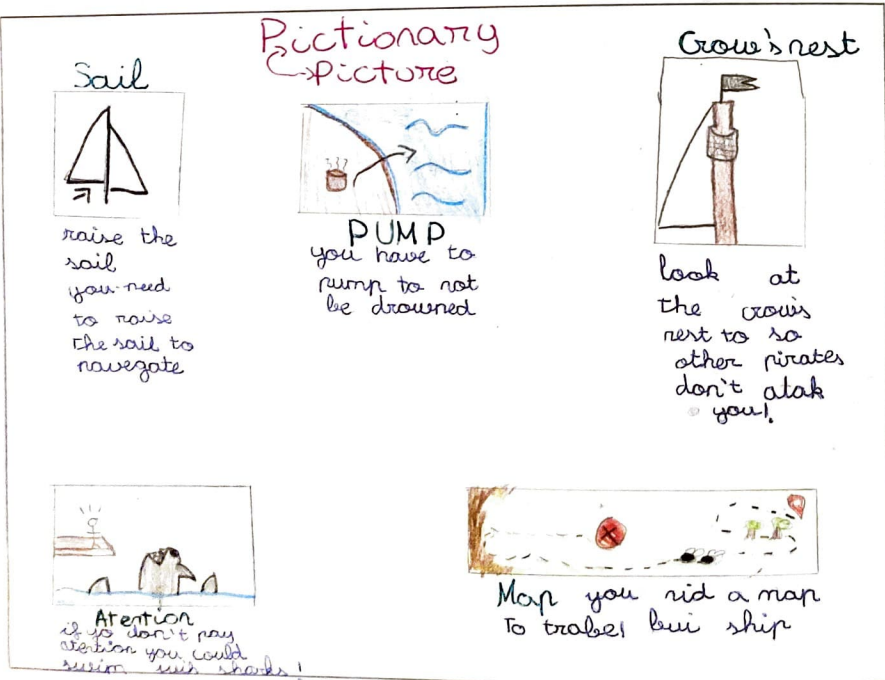 Pictionary
Picture
Sail
raise the
sail
you need
to raise
the sail to
navegate
PUMP
you have to
pump to not
be drowned
Crow's nest
look at
the crow's
nest to so
other pirates
don't atak
you!
Atention
if yo don't pay
atention you could
swim wis sharks!
Map you nid a map
To trabel bui ship